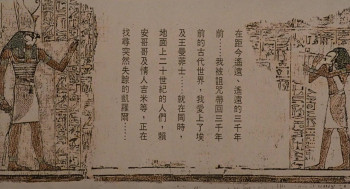 在距今遙遠、遙遠的三千年
前……我被詛咒帶回三千年
前的古代世界，我愛上了埃
及王曼菲士……就在同時，
地面上二十世紀的人們，賴
安哥哥及情人吉米等，正在
找尋突然失蹤的凱羅爾……